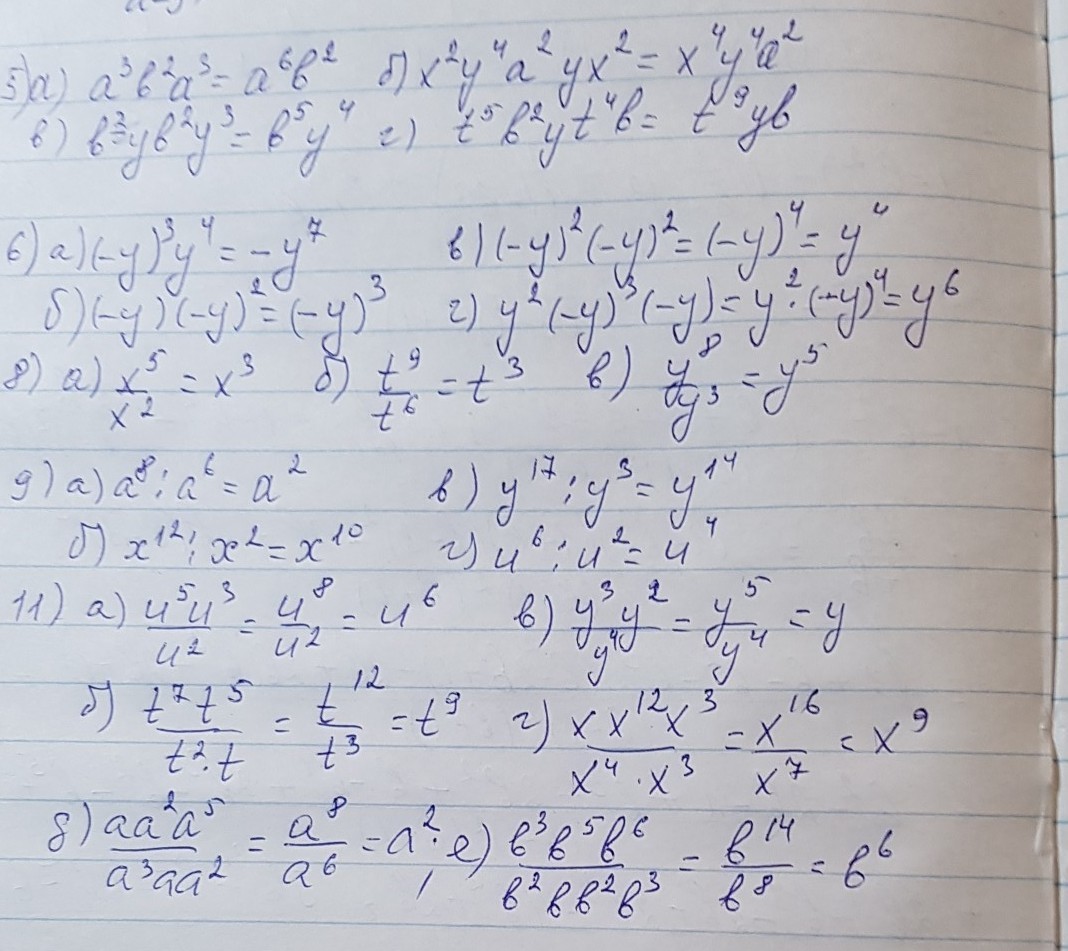 5) а) a³b²a³ = a⁶b² б) x²y⁴a²yx² = x⁴y⁴a²
в) b³yb²y³ = b⁵y⁴ г) t⁵b²yt⁴b = t⁹yb
6) а) (-y)³y⁴ = -y⁷ в) (-y)²(-y)² = (-y)⁴ = y⁴
б) (-y)(-y)² = (-y)³ г) y²(-y)³(-y) = y²·(-y)⁴ = y⁶
8) а) x⁵/x² = x³ б) t⁹/t⁶ = t³ в) y⁸/y³ = y⁵
9) а) a⁸ : a⁶ = a² в) y¹⁷ : y³ = y¹⁴
б) x¹² : x² = x¹⁰ г) u⁶ : u² = u⁴
11) а) u⁵u³/u² = u⁸/u² = u⁶ в) y³y²/y⁴ = y⁵/y⁴ = y
б) t⁷t⁵/t²·t = t¹²/t³ = t⁹ г) xx¹²x³/x⁴·x³ = x¹⁶/x⁷ = x⁹
д) aa²a⁵/a³aa² = a⁸/a⁶ = a²; е) b³b⁵b⁶/b²bb²b³ = b¹⁴/b⁸ = b⁶